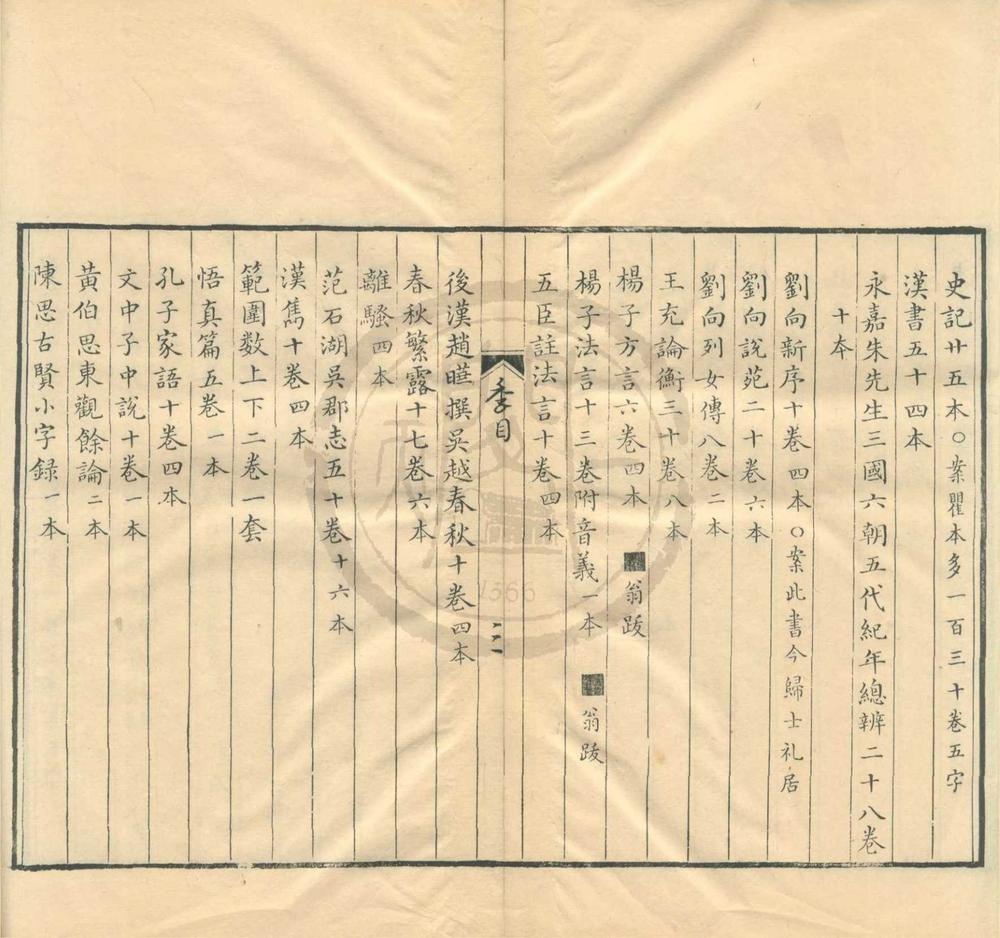 史記廿五本○案瞿本多一百三十卷五字
漢書五十四本
永嘉朱先生三國六朝五代紀年總辨二十八卷
十本
劉向新序十卷四本○案此書今歸士礼居
劉向說苑二十卷六本
劉向列女傳八卷二本
王充論衡三十卷八本
楊子方言六卷四本 翁跋
楊子法言十三卷附音義一本 翁跋
五臣註法言十卷四本
季目
二
後漢趙曄撰吳越春秋十卷四本
春秋繁露十七卷六本
離騷四本
范石湖吳郡志五十卷十六本
漢雋十卷四本
範圍数上下二卷一套
悟真篇五卷一本
孔子家語十卷四本
文中子中說十卷一本
黃伯思東觀餘論二本
陳思古賢小字録一本